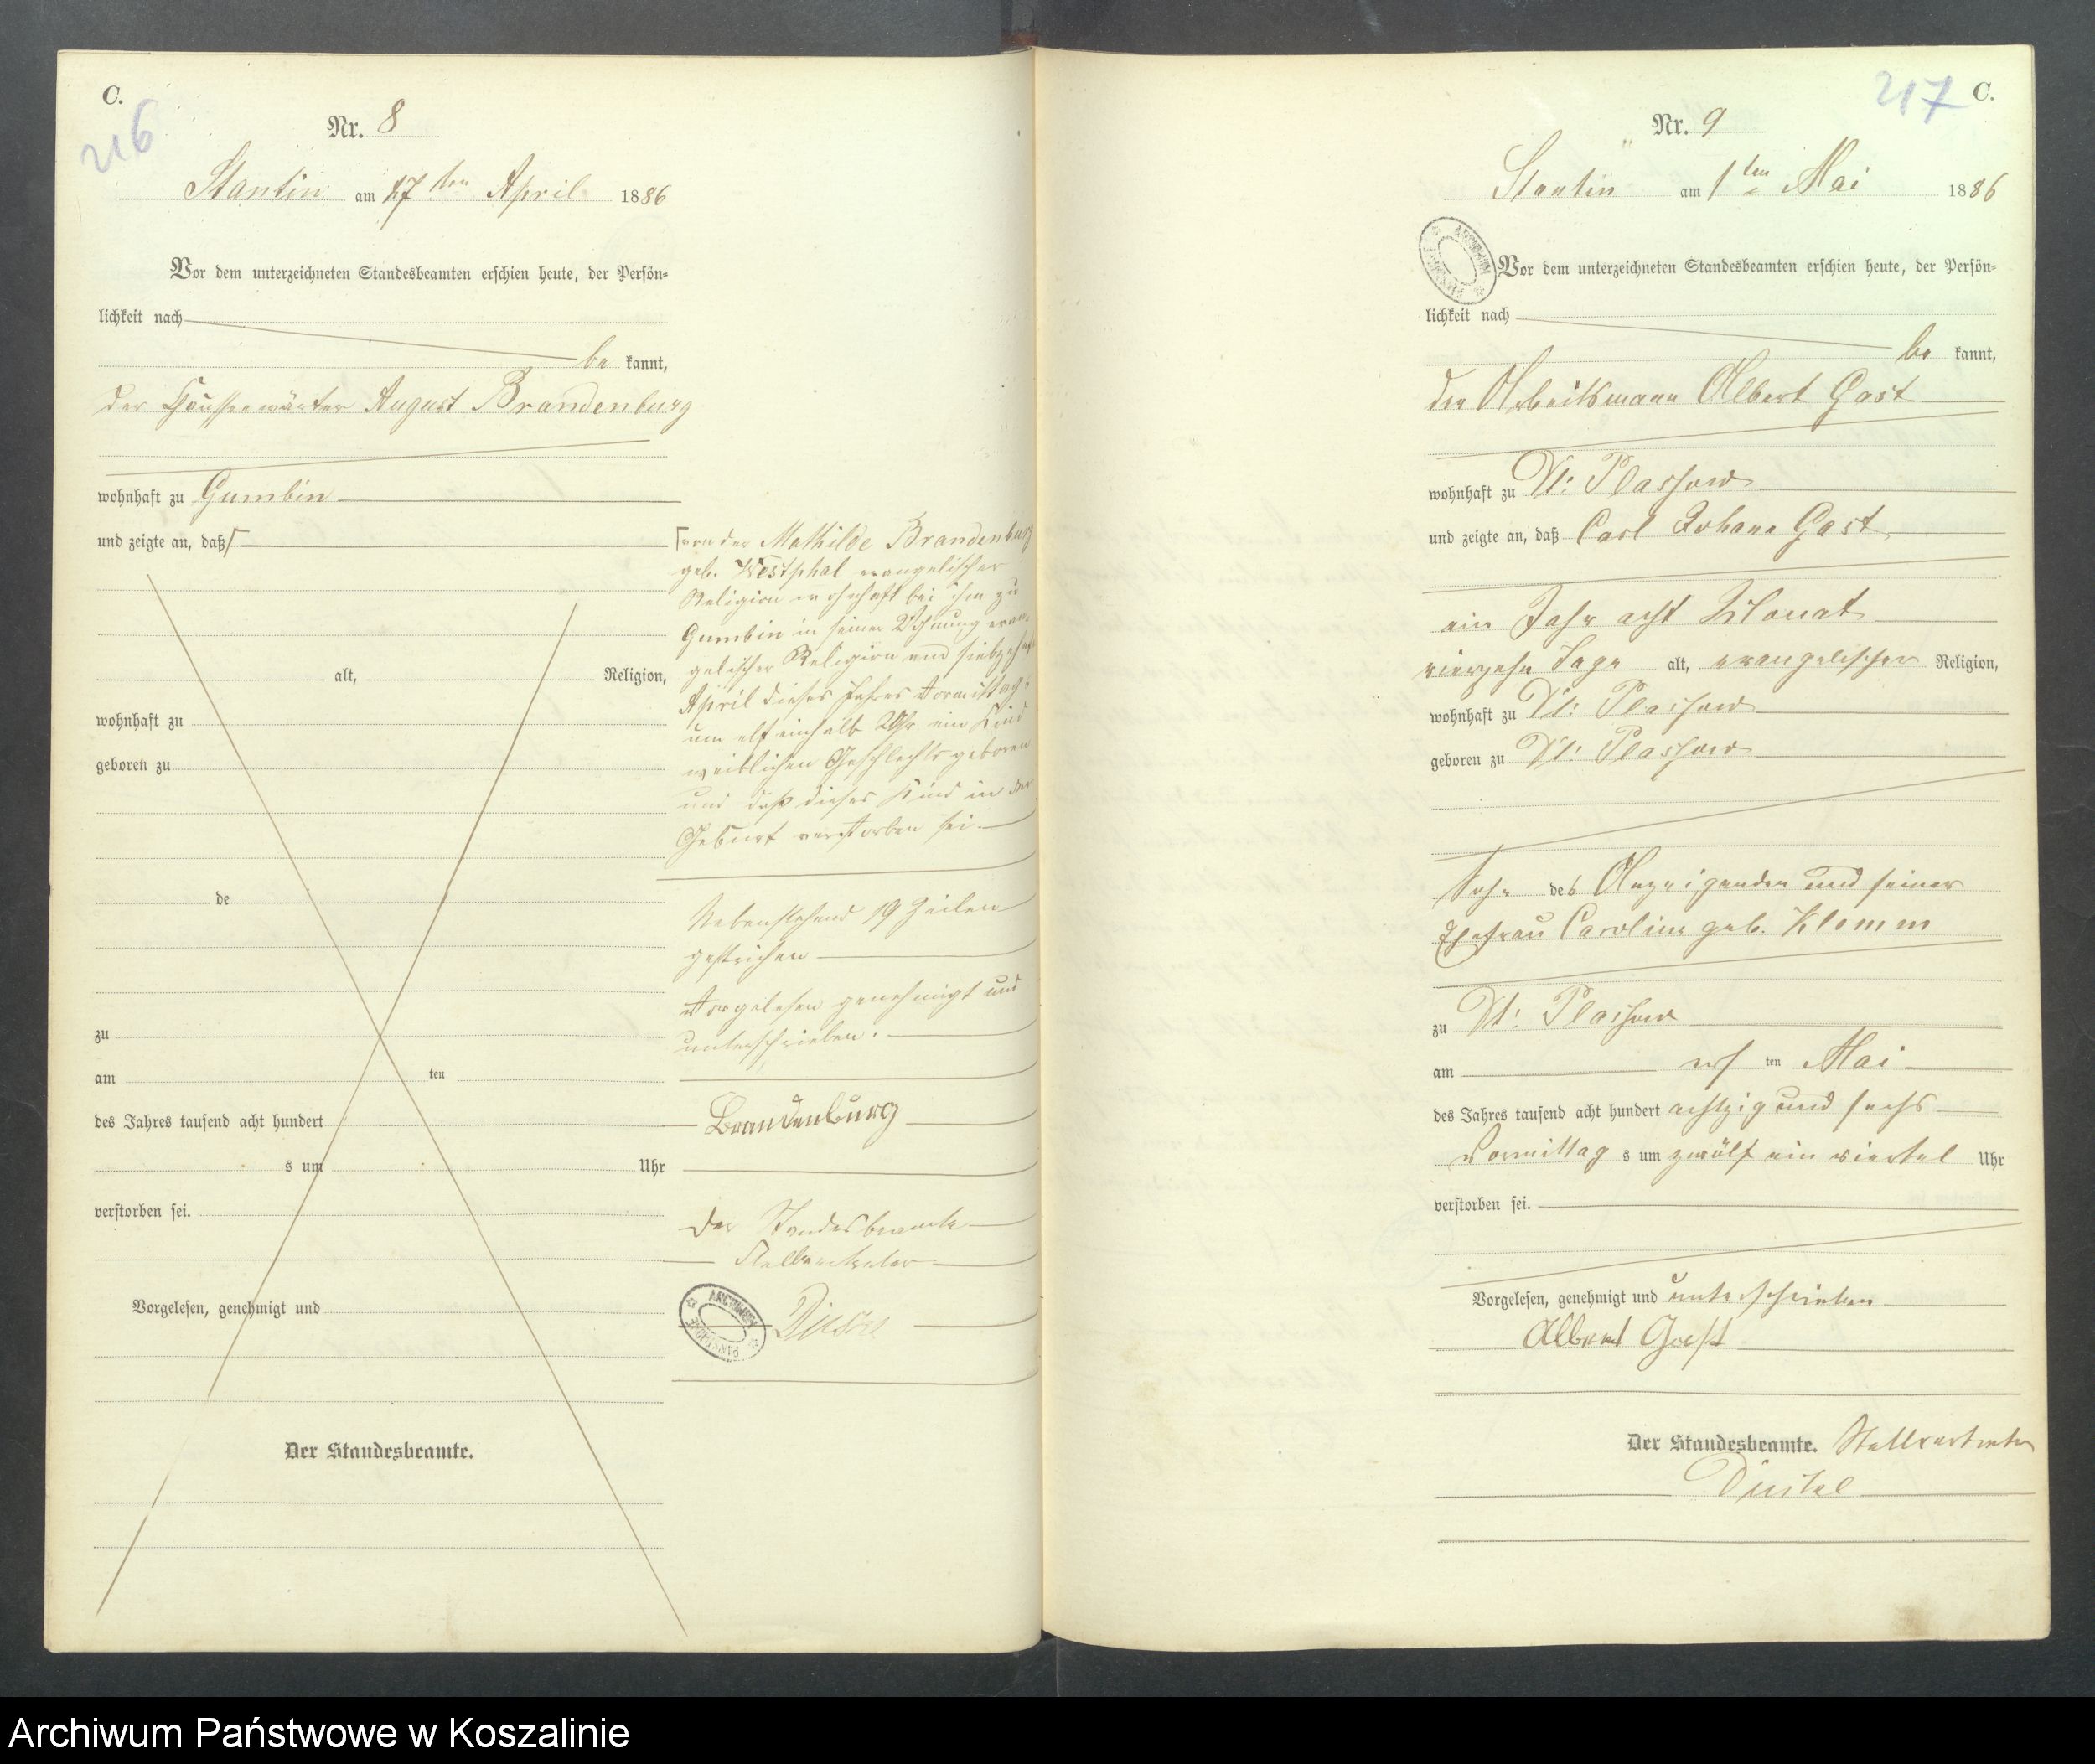 C.
216
Nr. 8
Stantin am 17ten April 1886
Vor dem unterzeichneten Standesbeamten erschien heute, der Persön-
lichkeit nach
be kannt,
der Chausseewärter August Brandenburg
wohnhaft zu Gumbin
und zeigte an, daß
alt, Religion,
wohnhaft zu
geboren zu
de
zu
am ten
des Jahres tausend acht hundert
s um Uhr
verstorben sei.
Vorgelesen, genehmigt und
Der Standesbeamte.
von der Mathilde Brandenburg
geb. Westphal evangelischer
Religion wohnhaft bei ihm zu
Gumbin in seiner Wohnung evan-
gelischer Religion am siebzehnten
April dieses Jahres Vormittags
um elf einhalb Uhr ein Kind
weiblichen Geschlechts geboren
und daß dieses Kind in der
Geburt verstorben sei
Nebenstehend 19 Zeilen
gestrichen
Vorgelesen genehmigt und
unterschrieben.
Brandenburg
Der Standesbeamte
Stellvertreter
217 C.
Nr. 9
Stantin am 1ten Mai 1886
Vor dem unterzeichneten Standesbeamten erschien heute, der Persön-
lichkeit nach
be kannt,
der Arbeitsmann Albert Gast
wohnhaft zu Wt: Plassow
und zeigte an, daß Carl Johann Gast
ein Jahr acht Monat
vierzehn Tage alt, evangelischer Religion,
wohnhaft zu Wt: Plassow
geboren zu Wt: Plassow
Sohn des Anzeigenden und seiner
Ehefrau Caroline geb. Klemm
zu Wt: Plassow
am ersten Mai
des Jahres tausend acht hundert achtzig und sechs
Vormittag s um zwölf ein viertel Uhr
verstorben sei.
Vorgelesen, genehmigt und unterschrieben
Albert Gast
Der Standesbeamte. Stellvertreter
Archiwum Państwowe w Koszalinie